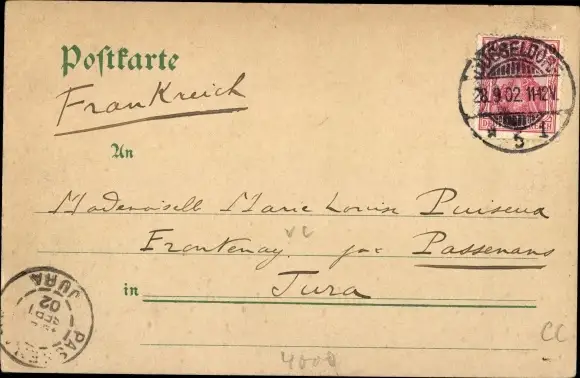 Postkarte
Frankreich
DÜSSELDORF
28.9.02. 11-12V.
* 5 1
An
Mademoiselle Marie Louise Puiseux
Frontenay par Passenans
in Jura
JURA
02
CC
4000